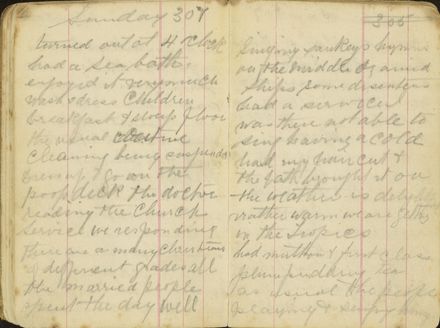 Sunday 30th
turned out at 4 clock
had a sea bath
enjoyed it very much
wash & dress Children
breakfast & sweep floor
the usual routine
cleaning being suspended
dress up & go on the
poop deck the doctor
reading the Church
service we responding
there are a many Christians
of different grades all
the married people
spent the day well
305
singing sankeys hymns
on the middle of a mid
ships some dissenters
had a service
was there not able to
sing having a cold
had my hair cut &
the bath brought it on
the weather is delightful
rather warm we are getting
in the tropics
had mutton & first class
plum pudding tea
as usual the people
playing & singing